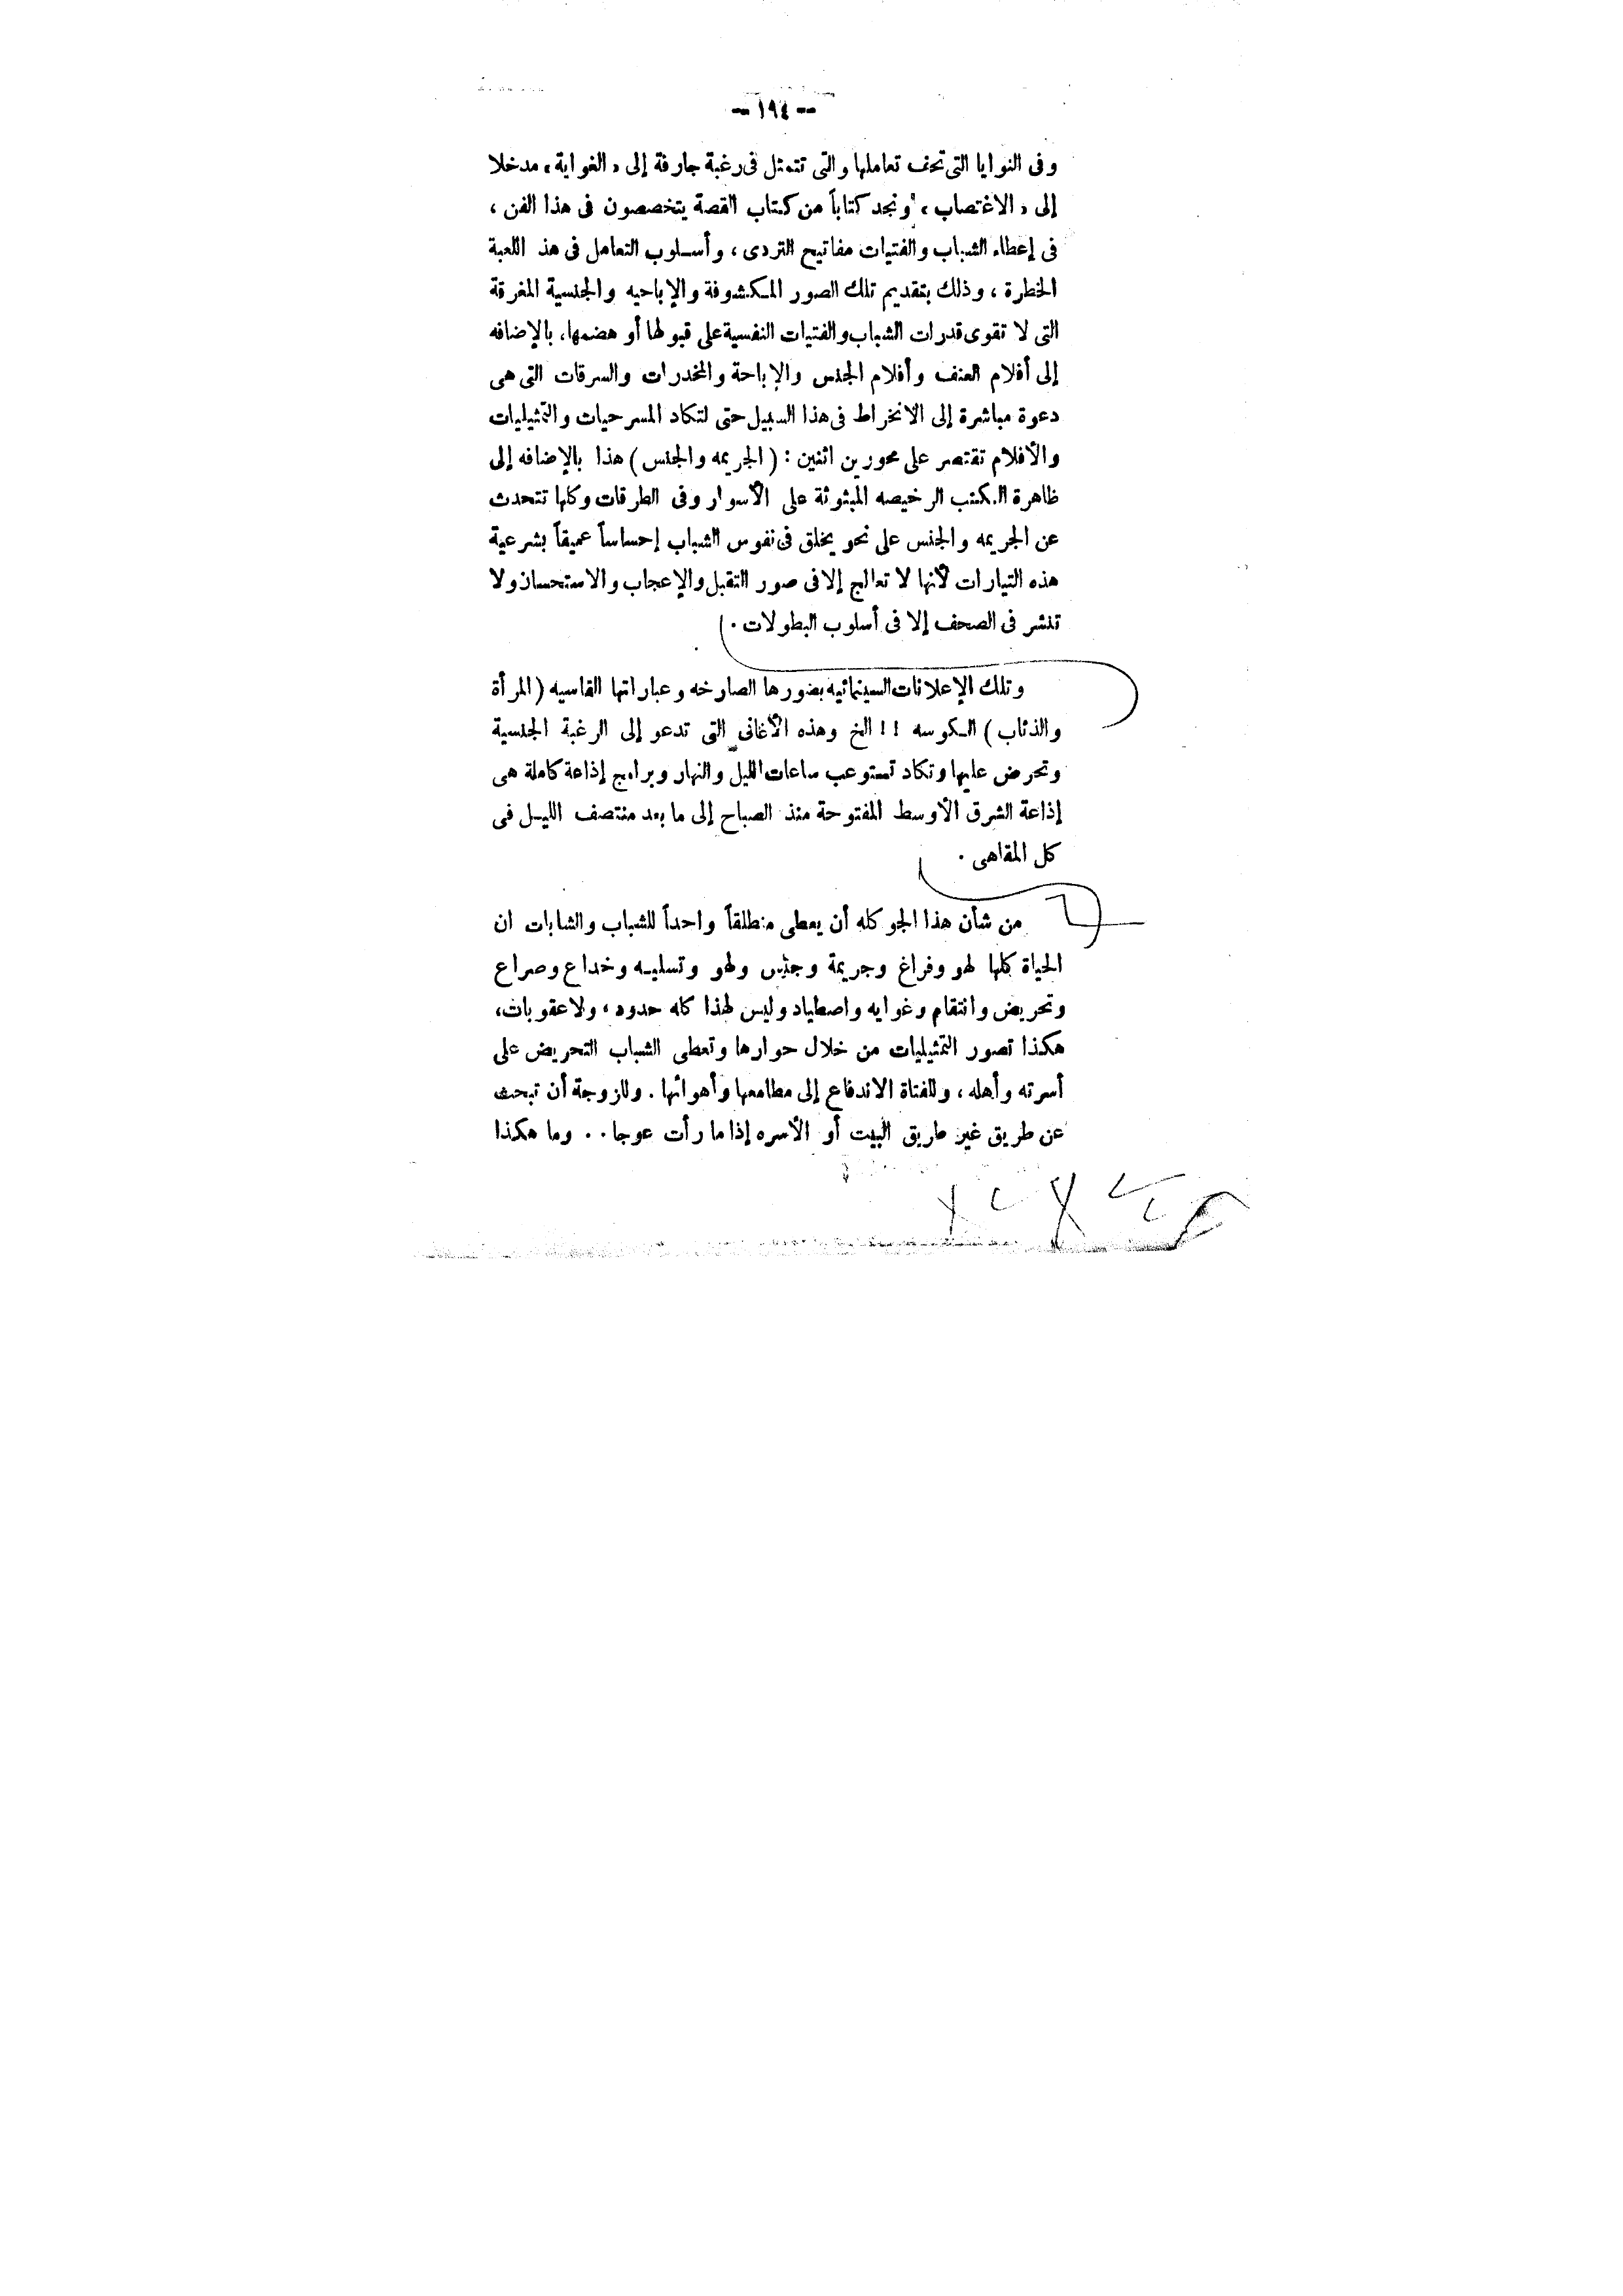 -- ١٩٤ --
وفى النوايا التى تحف تعاملها والتى تتمثل فى رغبة جارفة إلى «الغواية» مدخلا
إلى «الاغتصاب» ونجد كتاباً من كتاب القصة يتخصصون فى هذا الفن ،
فى إعطاء الشباب والفتيات مفاتيح التردى ، وأسلوب التعامل فى هذ اللعبة
الخطرة ، وذلك بتقديم تلك الصور المكشوفة والإباحيه والجنسية المغرقة
التى لا تقوى قدرات الشباب والفتيات النفسية على قبولها أو هضمها، بالإضافه
إلى أفلام العنف وأفلام الجنس والإباحة والمخدرات والسرقات التى هى
دعوة مباشرة إلى الانخراط فى هذا السبيل حتى لتكاد المسرحيات والتمثيليات
والأفلام تقتصر على محورين اثنين : (الجريمه والجنس) هذا بالإضافه إلى
ظاهرة الكتب الرخيصه المبثوثة على الأسوار وفى الطرقات وكلها تتحدث
عن الجريمه والجنس على نحو يخلق فى نفوس الشباب إحساساً عميقاً بشرعية
هذه التيارات لأنها لا تعالج إلا فى صور التقبل والإعجاب والاستحسان ولا
تنشر فى الصحف إلا فى أسلوب البطولات .
وتلك الإعلانات السينمائيه بصورها الصارخه وعباراتها القاسيه (المرأة
والذئاب) الكوسه !! الخ وهذه الأغانى التى تدعو إلى الرغبة الجنسية
وتحرض عليها وتكاد تستوعب ساعات الليل والنهار وبرامج إذاعة كاملة هى
إذاعة الشرق الأوسط المفتوحة منذ الصباح إلى ما بعد منتصف الليل فى
كل المقاهى .
من شأن هذا الجو كله أن يعطى منطلقاً واحداً للشباب والشابات ان
الحياة كلها لهو وفراغ وجريمة وجنس ولهو وتسليه وخداع وصراع
وتحريض وانتقام وغوايه واصطياد وليس لهذا كله حدود ، ولا عقوبات،
هكذا تصور التمثيليات من خلال حوارها وتعطى الشباب التحريض على
أسرته وأهله ، وللفتاة الاندفاع إلى مطامعها وأهوائها . وللزوجة أن تبحث
عن طريق غير طريق البيت أو الأسره إذا ما رأت عوجا . . وما هكذا